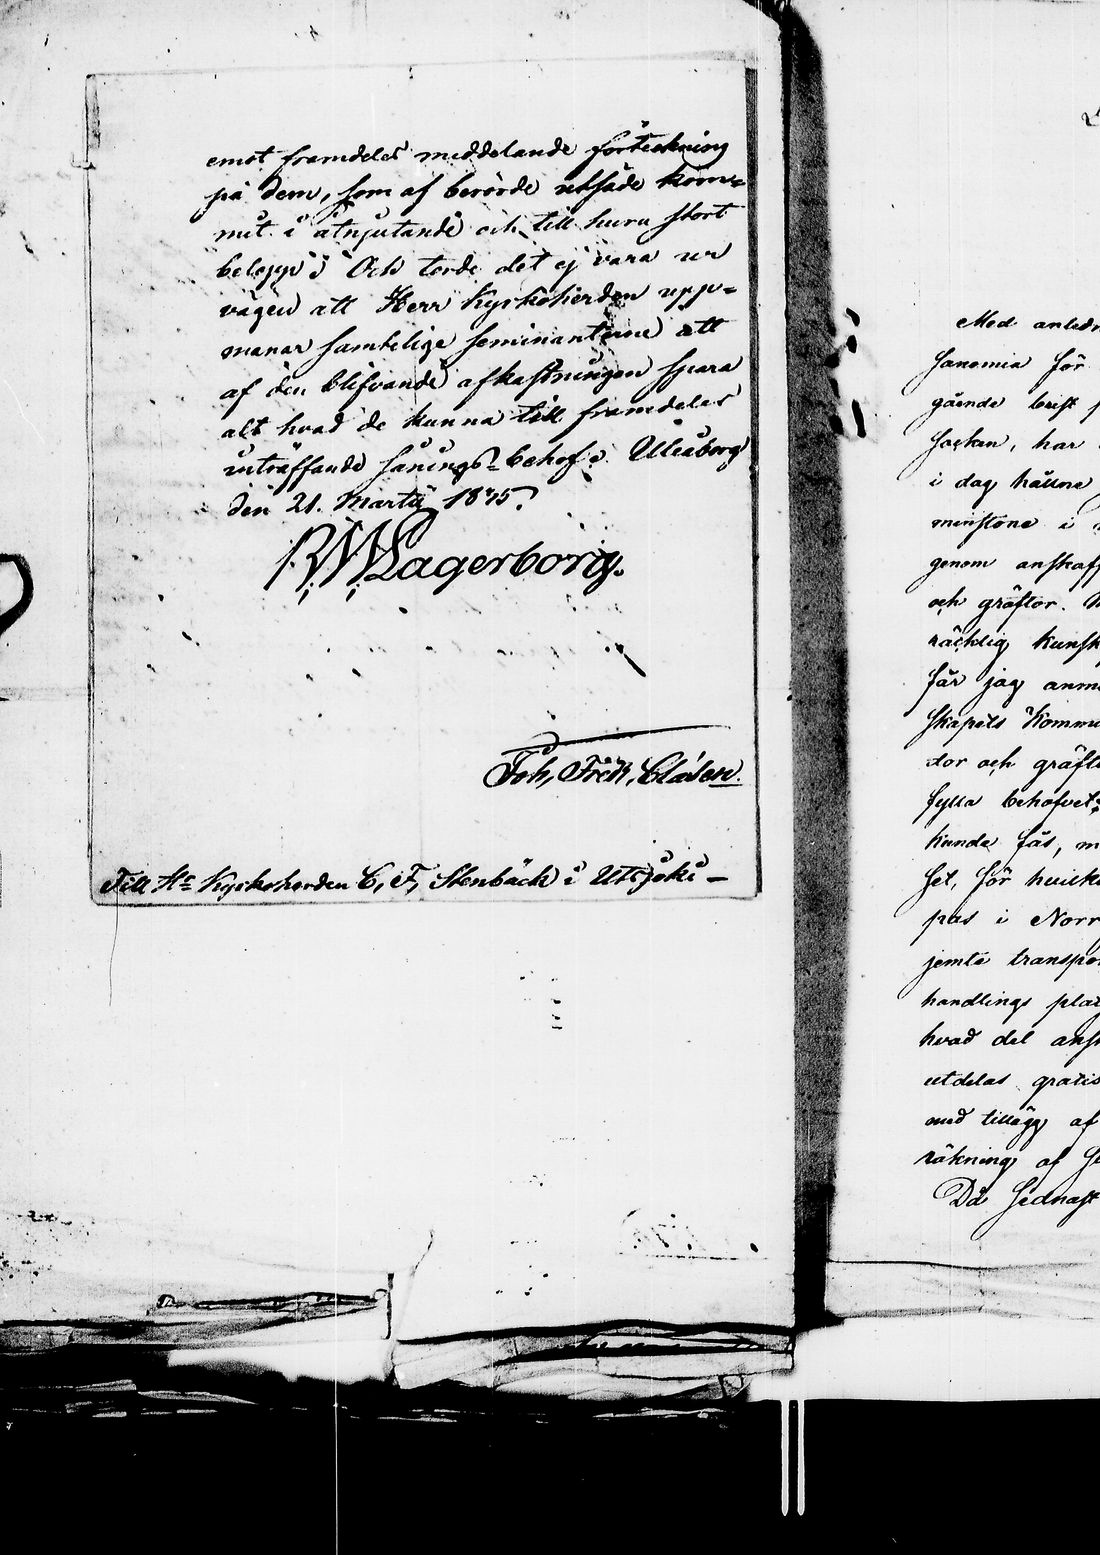 emot framdeles meddelande förteckning
på dem, som af berörde utsäde kom=
mit i åtnjutande och till huru stort
belopp; Och torde det ej vara ur
vägen att Herr Kyrkoherden upp=
manar samtelige seminanterne att
af den blifvande afkastningen spara
alt hvad de kunna till framdeles
inträffande sånings-behof. Uleåborg
den 21. Martij 1845.
RMLagerborg.
Joh, Fredr, Clásen.
Till Hr Kyrkoherden C, F, Stenbäck i Utsjoki –
Med anledn
sonomia för
gående bref
Sockan, har
i dag hållne
minstone i
genom anskaff
och gräftor.
räcklig kunsk
får jag anm
skapets Kommu
dor och gräft
fylla behofvet
kunde fås, m
set, för hvilke
pas i Norr
jemte transpor
handlings plat
hvad del ansk
utdelas gratis
med tillägg af
räkning af
Då sednast